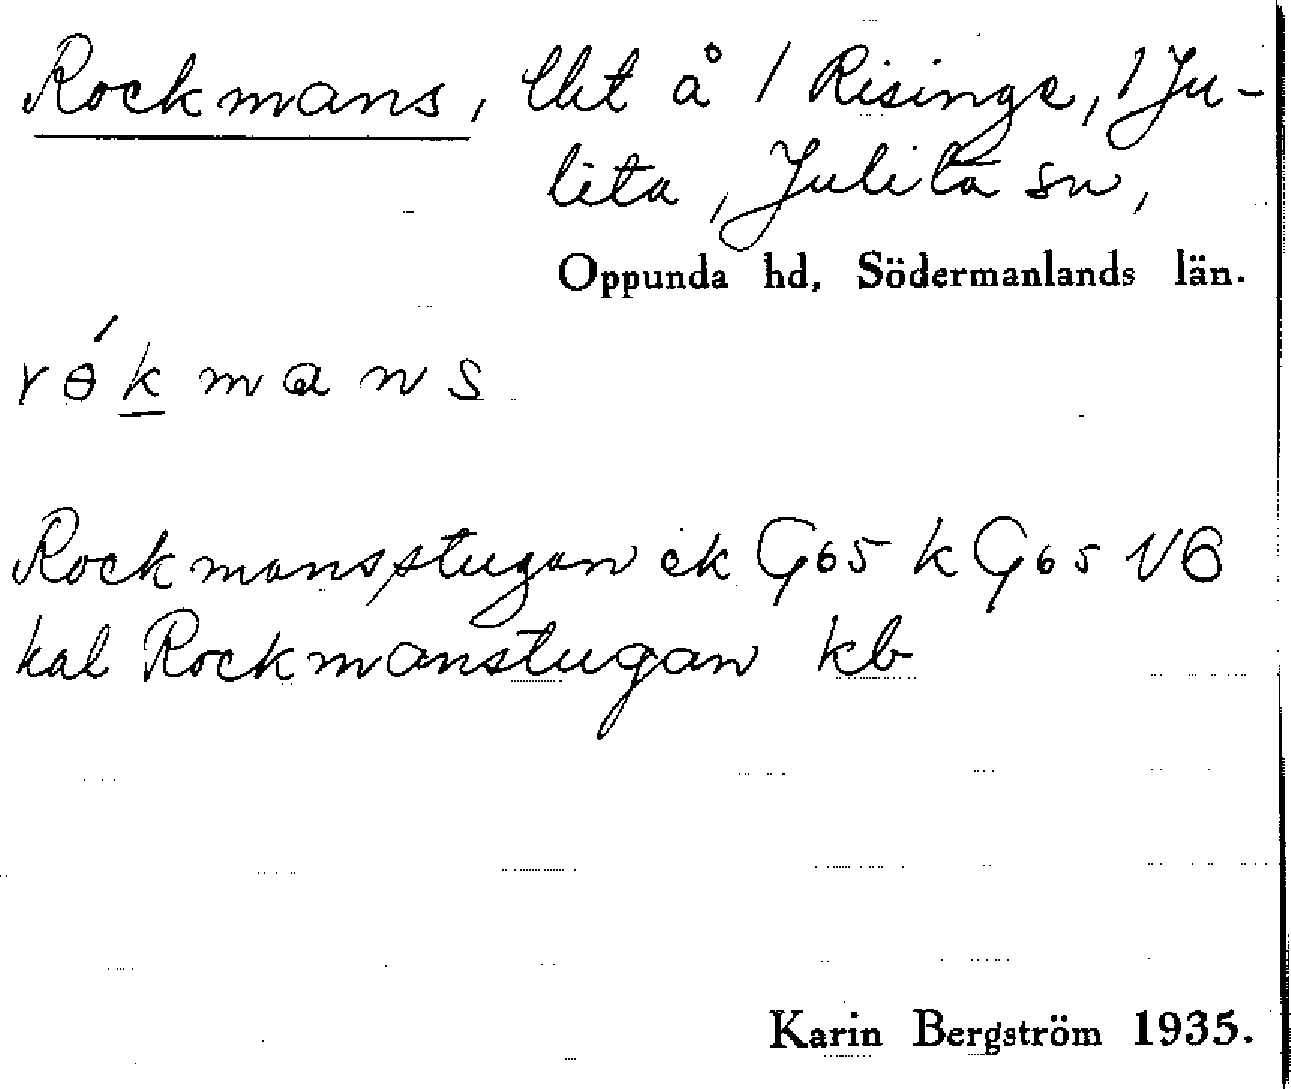 Rockmans, lht å / Risinge, / Ju-
lita, Julita sn,
Oppunda hd, Södermanlands län.
rɵ́kmans
Rockmansstugan ek G65 k G65 VB
kal Rockmanstugan kb
Karin Bergström 1935.